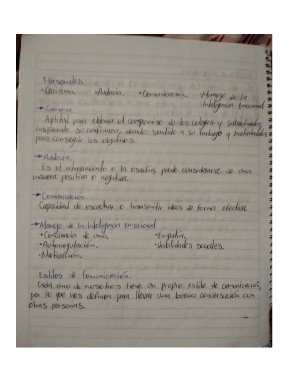 Personales
• Carisma • Audacia • Comunicación • Manejo de la
Inteligencia emocional
→ Carisma
Aptitud para obtener el compromiso de los colegas y subordinados
inspirando su confianza, dando sentido a su trabajo y motivándolos
para conseguir los objetivos.
→ Audacia
Es el atrevimiento o la osadía, puede considerarse de una
manera positiva o negativa.
→ Comunicación
Capacidad de escuchar o transmitir ideas de forma efectiva.
→ Manejo de la Inteligencia emocional
• Conciencia de uno • Empatía
• Autorregulación. • Habilidades sociales.
• Motivación.
Estilos de Comunicación.
Cada uno de nosotros tiene un propio estilo de comunicación,
por lo que nos definen para llevar una buena conversación con
otras personas.